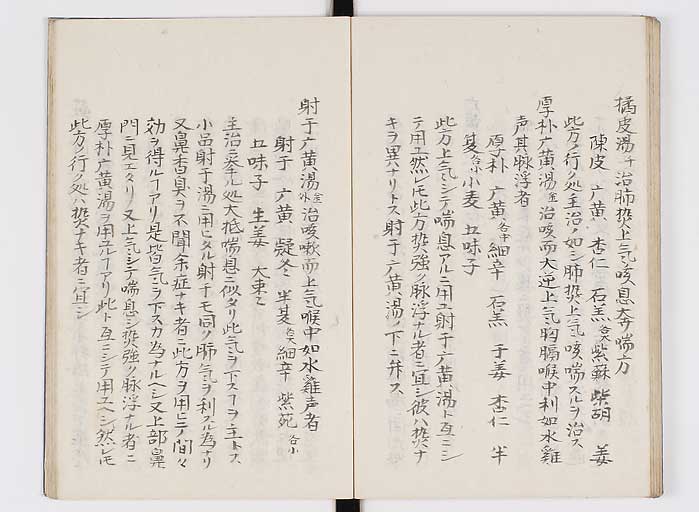 橘皮湯千治肺熱上気咳息大奔喘方
陳皮 广黄 杏仁 石羔各大 紫蘇 柴胡 姜
此方ノ行ク処主治ノ如シ肺熱上気咳喘スルヲ治ス
厚朴广黄湯金治咳而大逆上気胸膈喉中利如水雞
声其脉浮者
厚朴 广黄各中 細辛 石羔 干姜 杏仁 半
夏各小 小麦 五味子
此方上気シテ喘息アルニ用ユ射干广黄湯ト互ニシ
テ用ユ然レモ此方熱強ク脉浮ナル者ニ宜シ彼ハ熱ナ
キヲ異ナリトス射干广黄湯ノ下ニ弁ス
射干广黄湯金 治咳嗽而上気喉中如水雞声者
射干 广黄 疑冬 半夏各大 細辛 紫菀各小
五味子 生姜 大棗
主治ニ挙ル処大抵喘息ニ似タリ此気ヲ下スヿヲ主トス
小品射干湯ニ用ヒタル射干モ同ク肺気ヲ利スル為ナリ
又鼻香臭ヲ不聞余症ナキ者ニ此方ヲ用ヒテ間々
効ヲ得ルヿアリ是皆気ヲ下スカ為ナルヘシ又上部鼻
門ニ見エタリ又上気シテ喘息シ熱強ク脉浮ナル者ニ
厚朴广黄湯ヲ用ユルヿアリ此ト互ニシテ用ユヘシ然レモ
此方ノ行ク処ハ熱ナキ者ニ宜シ